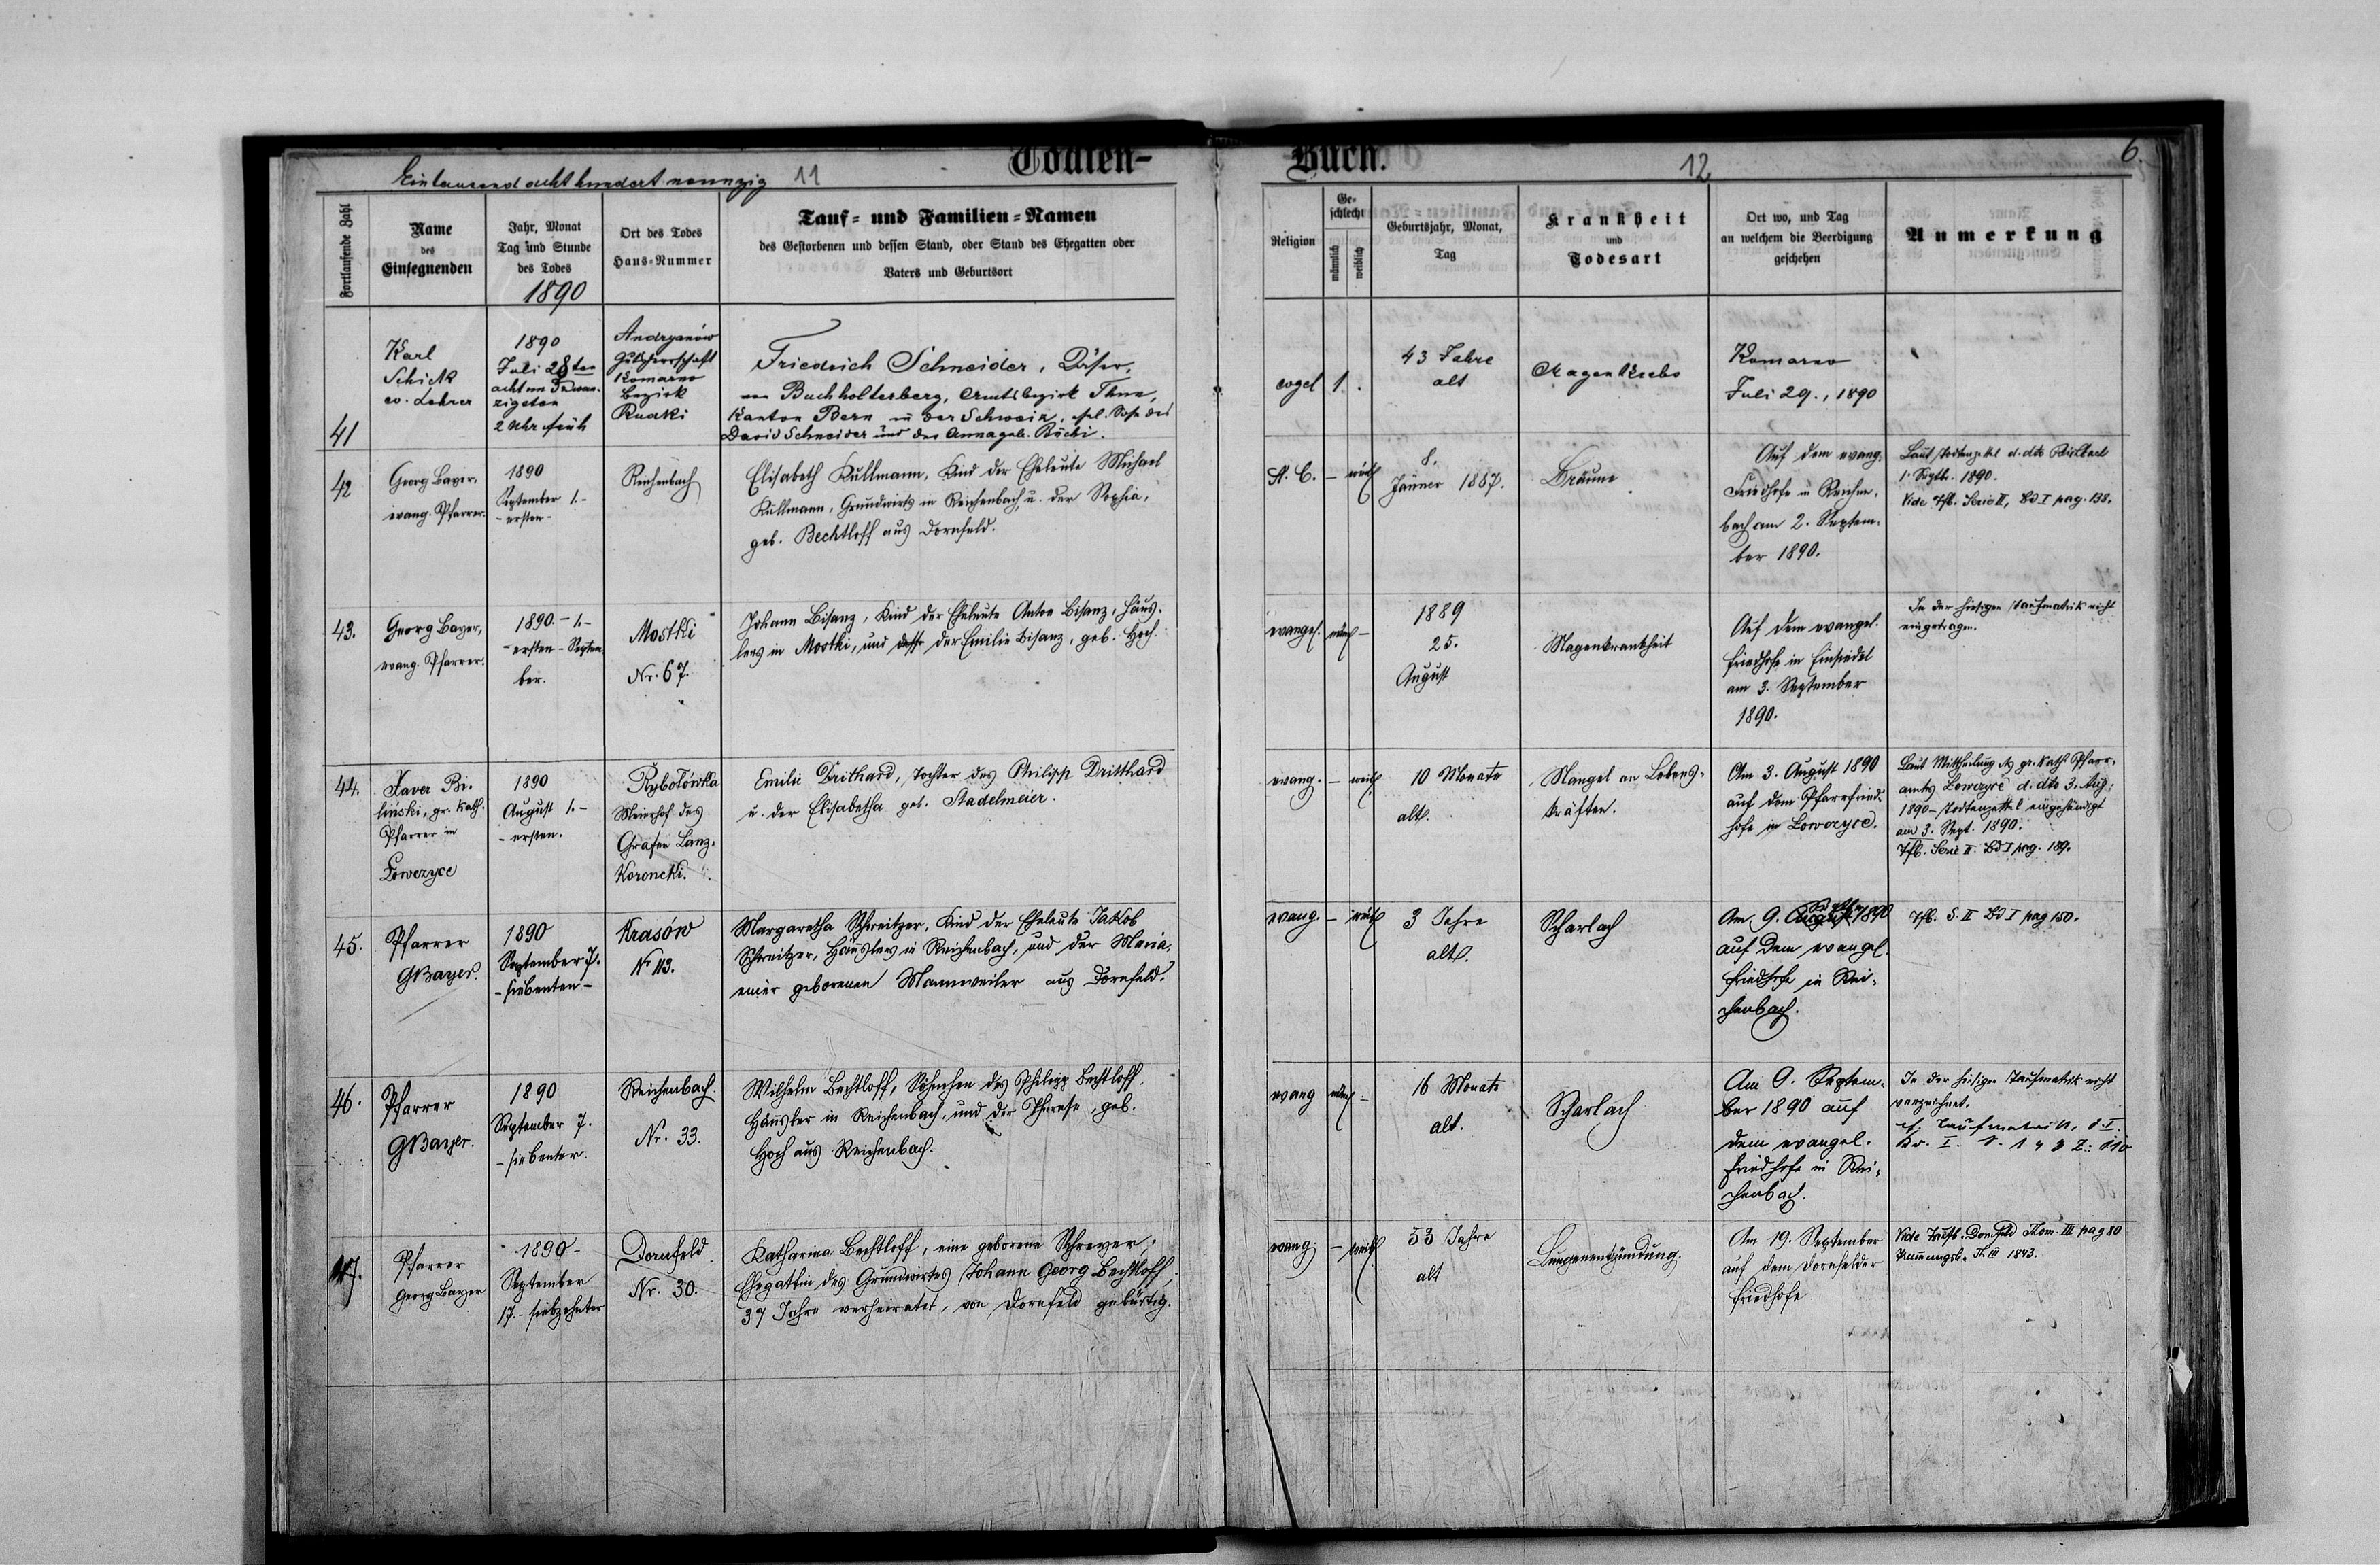 Todten-
Buch.
Eintausend achthundert neunzig 11
12
6.
Fortlaufende Zahl
Name
des
Einsegnenden
Jahr, Monat
Tag und Stunde
des Todes
1890
Ort des Todes
Haus-Nummer
Tauf- und Familien-Namen
des Gestorbenen und dessen Stand, oder Stand des Ehegatten oder
Vaters und Geburtsort
Religion
Ge-
schlecht
männlich
weiblich
Geburtsjahr, Monat,
Tag
Krankheit
und
Todesart
Ort wo, und Tag
an welchem die Beerdigung
geschehen
Anmerkung
41
Karl
Schick
ev. Lehrer
1890
Juli 28ten
achtundzwan-
zigsten
2 Uhr früh
Andryanów
Gutsherrschaft
Komarno
Bezirk
Rudki
Friedrich Schneider, Käser,
von Buchholterberg, Amtsbezirk Thun,
Kanton Bern in der Schweiz, ehl. Sohn des
David Schneider und der Anna geb. Büchi.
evgel
1.
43 Jahre
alt
Magenkrebs
Komarno
Juli 29., 1890
42
Georg Bayer,
evang. Pfarrer.
1890
September 1.-
- ersten -
Reichenbach
Elisabeth Kullmann, Kind der Eheleute Michael
Kullmann, Grundwirts in Reichenbach, u. der Sophia,
geb. Bechtloff aus Dornfeld.
A. C.
- weibl
8.
Jänner 1887.
Bräune
Auf dem evang.
Friedhofe in Reichen-
bach am 2. Septem-
ber 1890.
Laut Todtenzettel d. dto Reichenbach
1. Septb. 1890.
Vide Tfb. Serie II, Bd I pag. 138.
43.
Georg Bayer,
evang. Pfarrer.
1890. - 1.-
- ersten - Septem-
ber.
Mostki
Nr. 67.
Johann Bisanz, Kind der Eheleute Anton Bisanz, Häus-
lers in Mostki, und der Emilie Bisanz, geb. Hoch.
evangel.
männl -
1889
25.
August
Magenkrankheit
Auf dem evangel.
Friedhofe in Einsiedel
am 3. September
1890.
In der hiesigen Taufmatrik nicht
eingetragen.
44.
Xaver Bi-
liński, gr. kath.
Pfarrer in
Łowczyce
1890
August 1.-
- ersten.
Rybołówka
Meierhof des
Grafen Lanz-
koroncki.
Emilie Drithard, Tochter des Philipp Dritthard
u. der Elisabetha geb. Stadelmeier.
evang.
- weibl.
10 Monate
alt.
Mangel an Lebens-
kräften.
Am 3. August 1890
auf dem Pfarrfried-
hofe in Lowczyce.
Laut Mittheilung d. gr. kath. Pfarr-
amts Lowczyce d. dto 3. Aug.
1890 - Todtenzettel eingehändigt
am 3. Sept. 1890.
Tfb. Serie II. Bd I pag. 189.
45.
Pfarrer
GBayer.
1890
September 7.
- siebenten -
Krasów
Nr 113.
Margaretha Schweitzer, Kind der Eheleute Jakob
Schweitzer, Häuslers in Reichenbach, und der Maria,
einer geborenen Mannweiler aus Dornfeld.
evang.
- weibl
3 Jahre
alt.
Scharlach
Am 9. August 1890
auf dem evangel.
Friedhofe in Rei-
chenbach.
Tfb. S. II Bd I pag 150.
46.
Pfarrer
GBayer.
1890
September 7.
- siebenter.
Reichenbach
Nr. 33.
Wilhelm Bechtloff, Söhnchen des Philipp Bechtloff,
Häusler in Reichenbach, und der Therese, geb.
Hoch aus Reichenbach.
evang
männl -
16 Monate
alt.
Scharlach
Am 9. Septem-
ber 1890 auf
dem evangel.
Friedhofe in Rei-
chenbach.
In der hiesigen Taufmatrik nicht
verzeichnet.
cf. Taufmatrik,
47.
Pfarrer
Georg Bayer
1890 -
September
17. - siebzehnter
Dornfeld
Nr. 30.
Katharina Bechtloff, eine geborene Schreyer,
Ehegattin des Grundwirtes Johann Georg Bechtloff,
37 Jahre verheiratet, von Dornfeld gebürtig.
evang.
- weibl.
53 Jahre
alt
Lungenentzündung.
Am 19. September
auf dem Dornfelder
Friedhofe
Vide Taufb. Dornfeld Tom. III pag 80